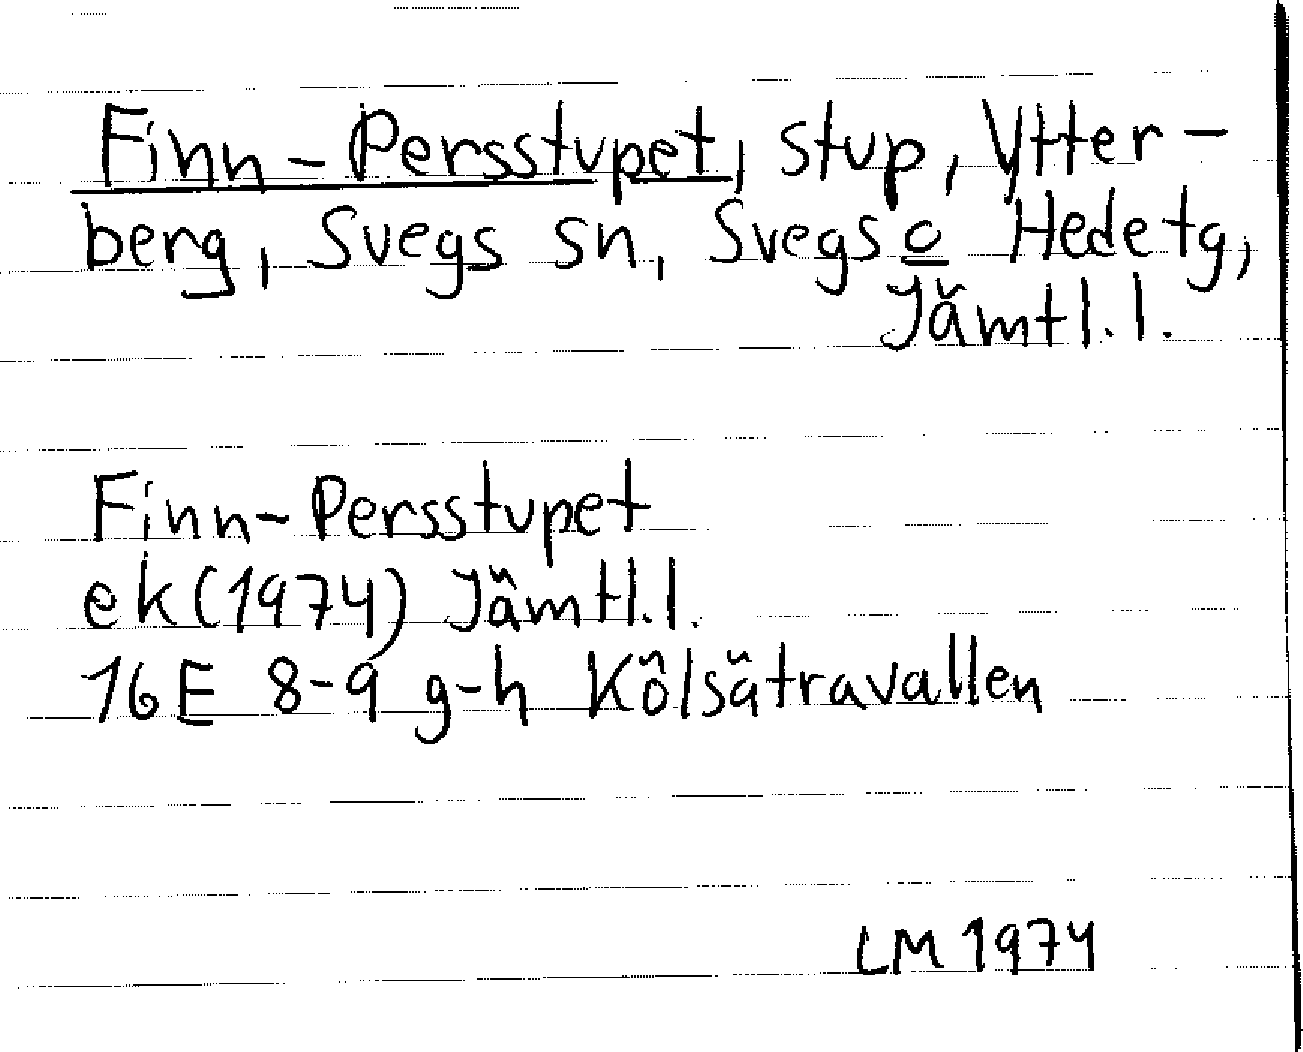 Finn-Persstupet, stup, Ytter-
berg, Svegs sn, Svegs o Hedetg,
Jämtl.l.
Finn-Persstupet
ek(1974) Jämtl.l.
16E 8-9 g-h Kölsätravallen
LM 1974